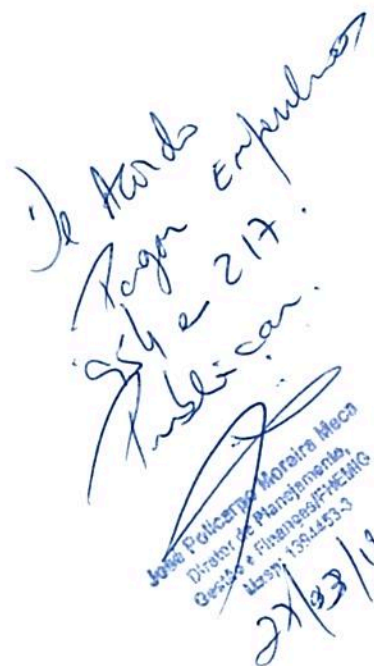 De Acordo
Pagar Empenhos
e 217.
Publicar.
José Policarpo Moreira Meca
Diretor de Planejamento,
Gestão e Finanças/FHEMIG
Masp: 1394453-3
27/03/1